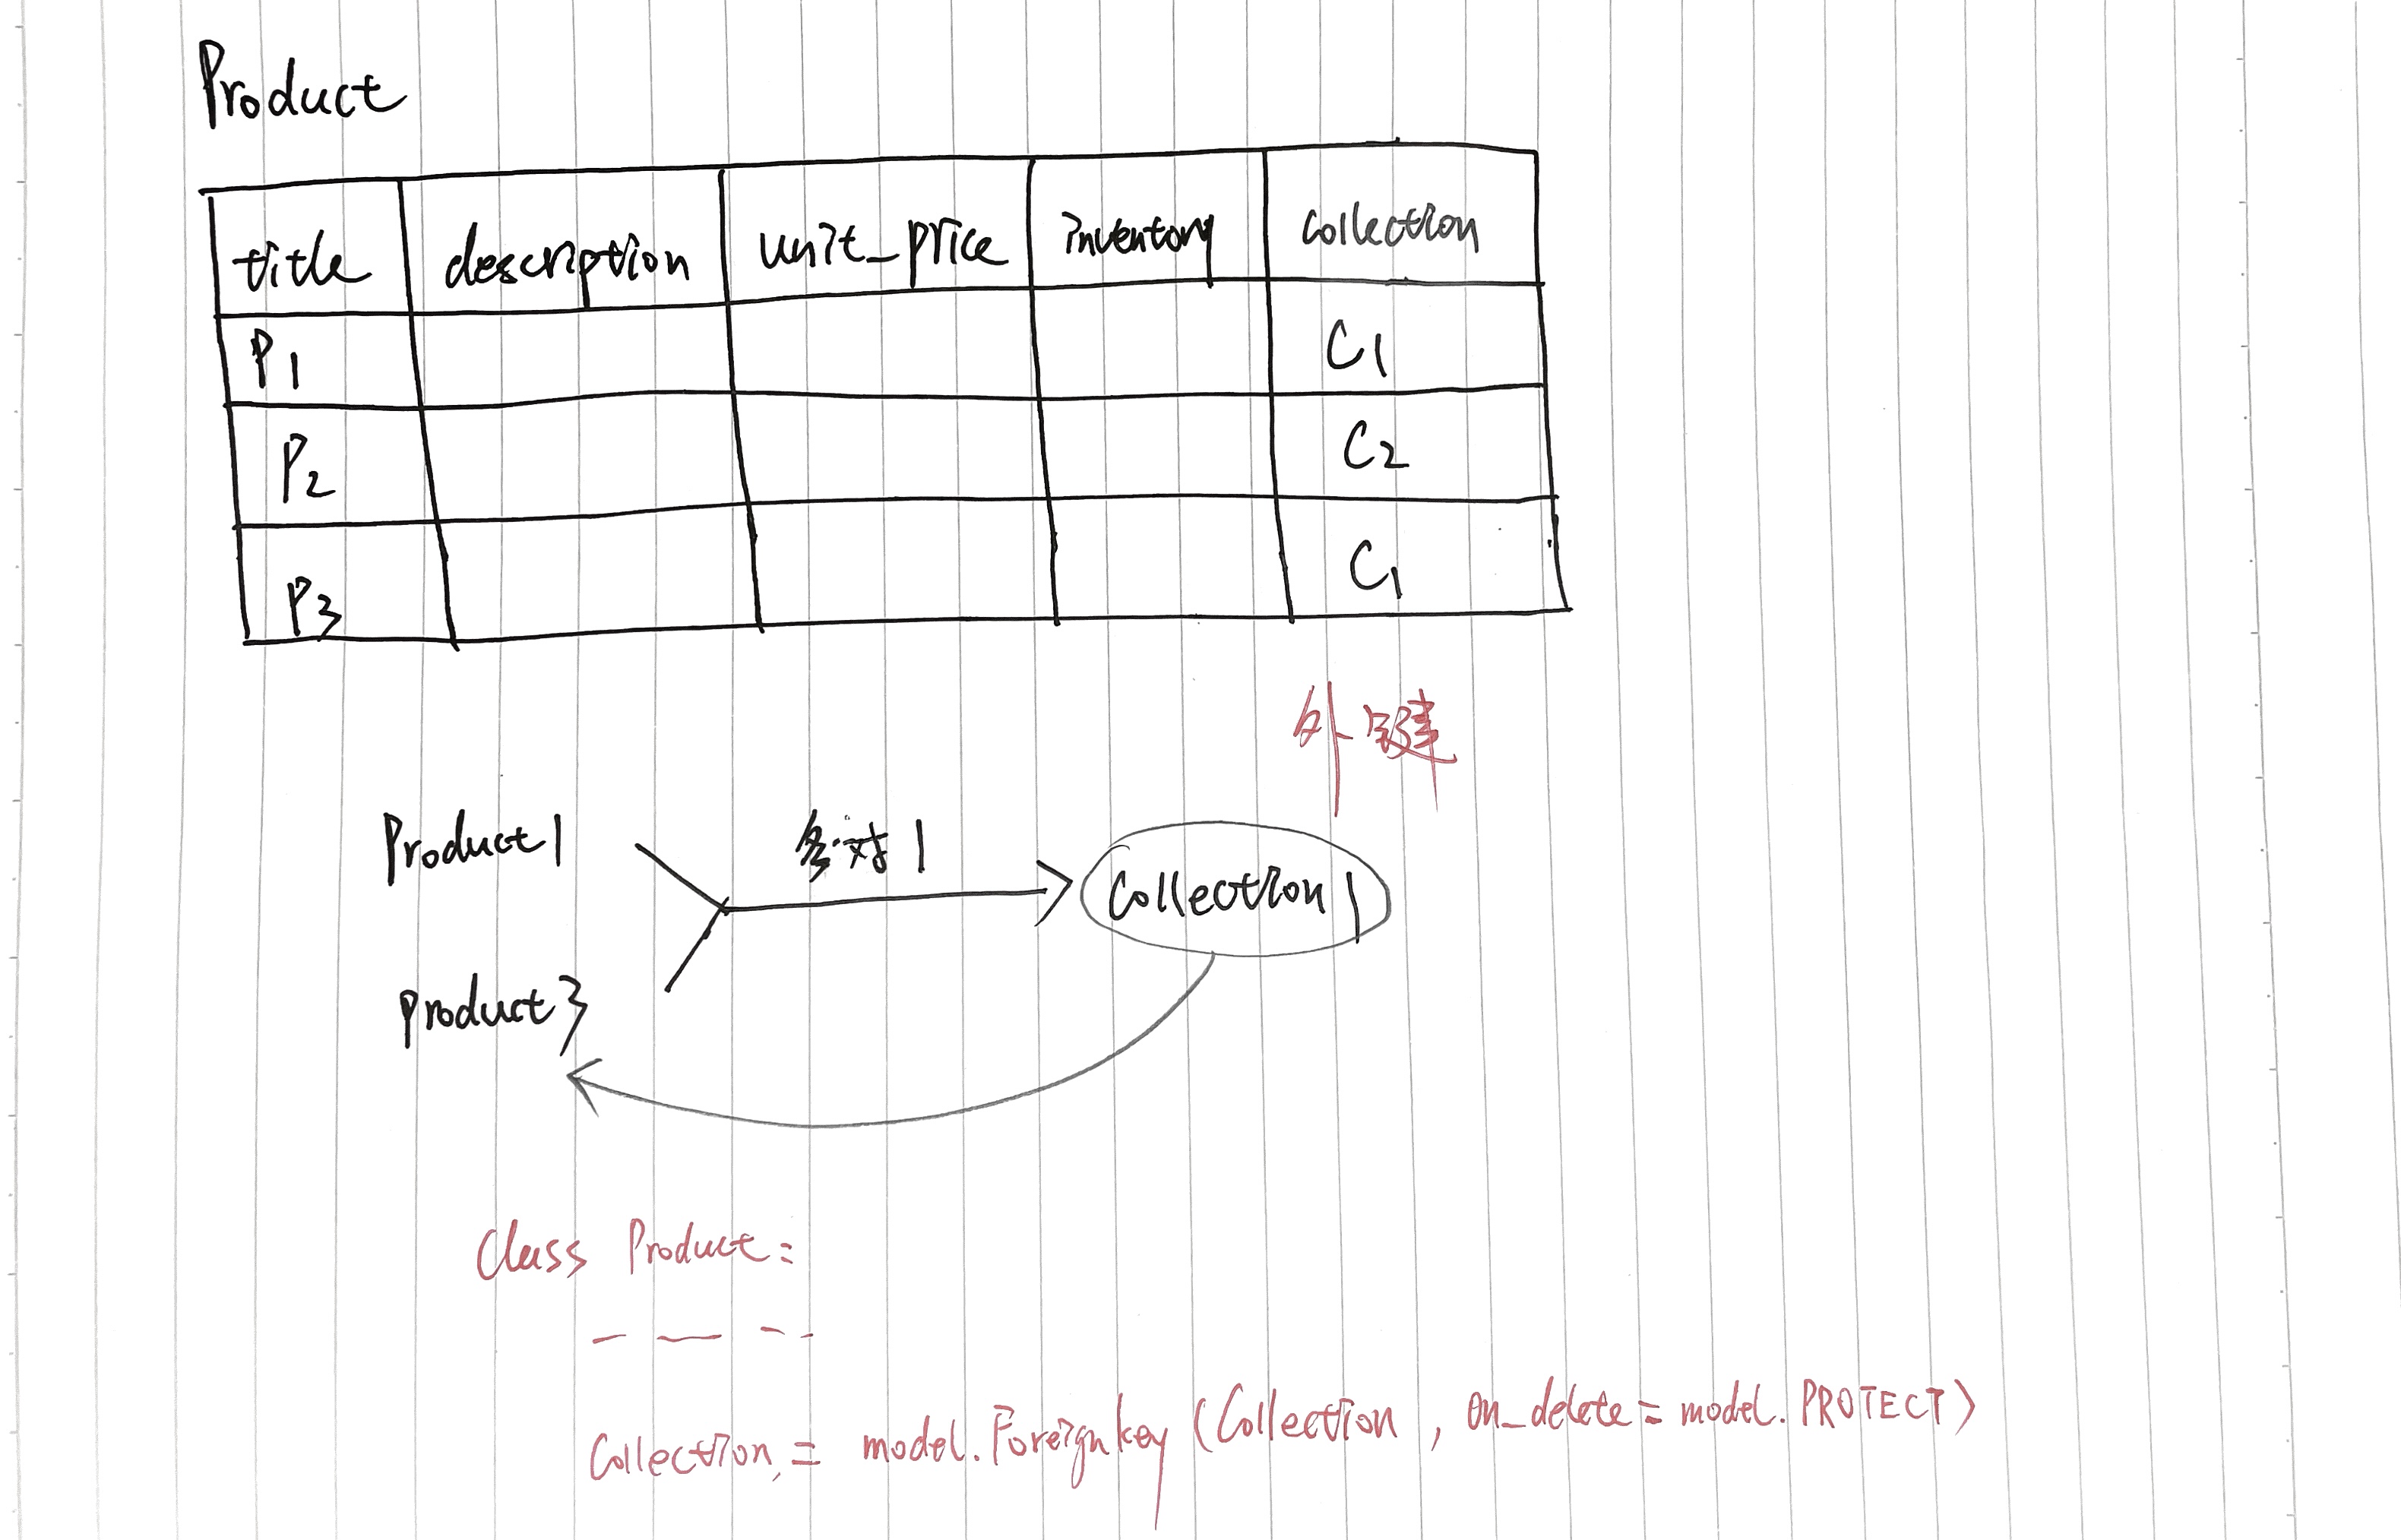 Product
title description unit_price inventory collection
P1 C1
P2 C2
P3 C1
外键
Product1 多对1 Collection1
product3
Class Product:
Collection = model.Foreignkey (Collection, on_delete = model.PROTECT)